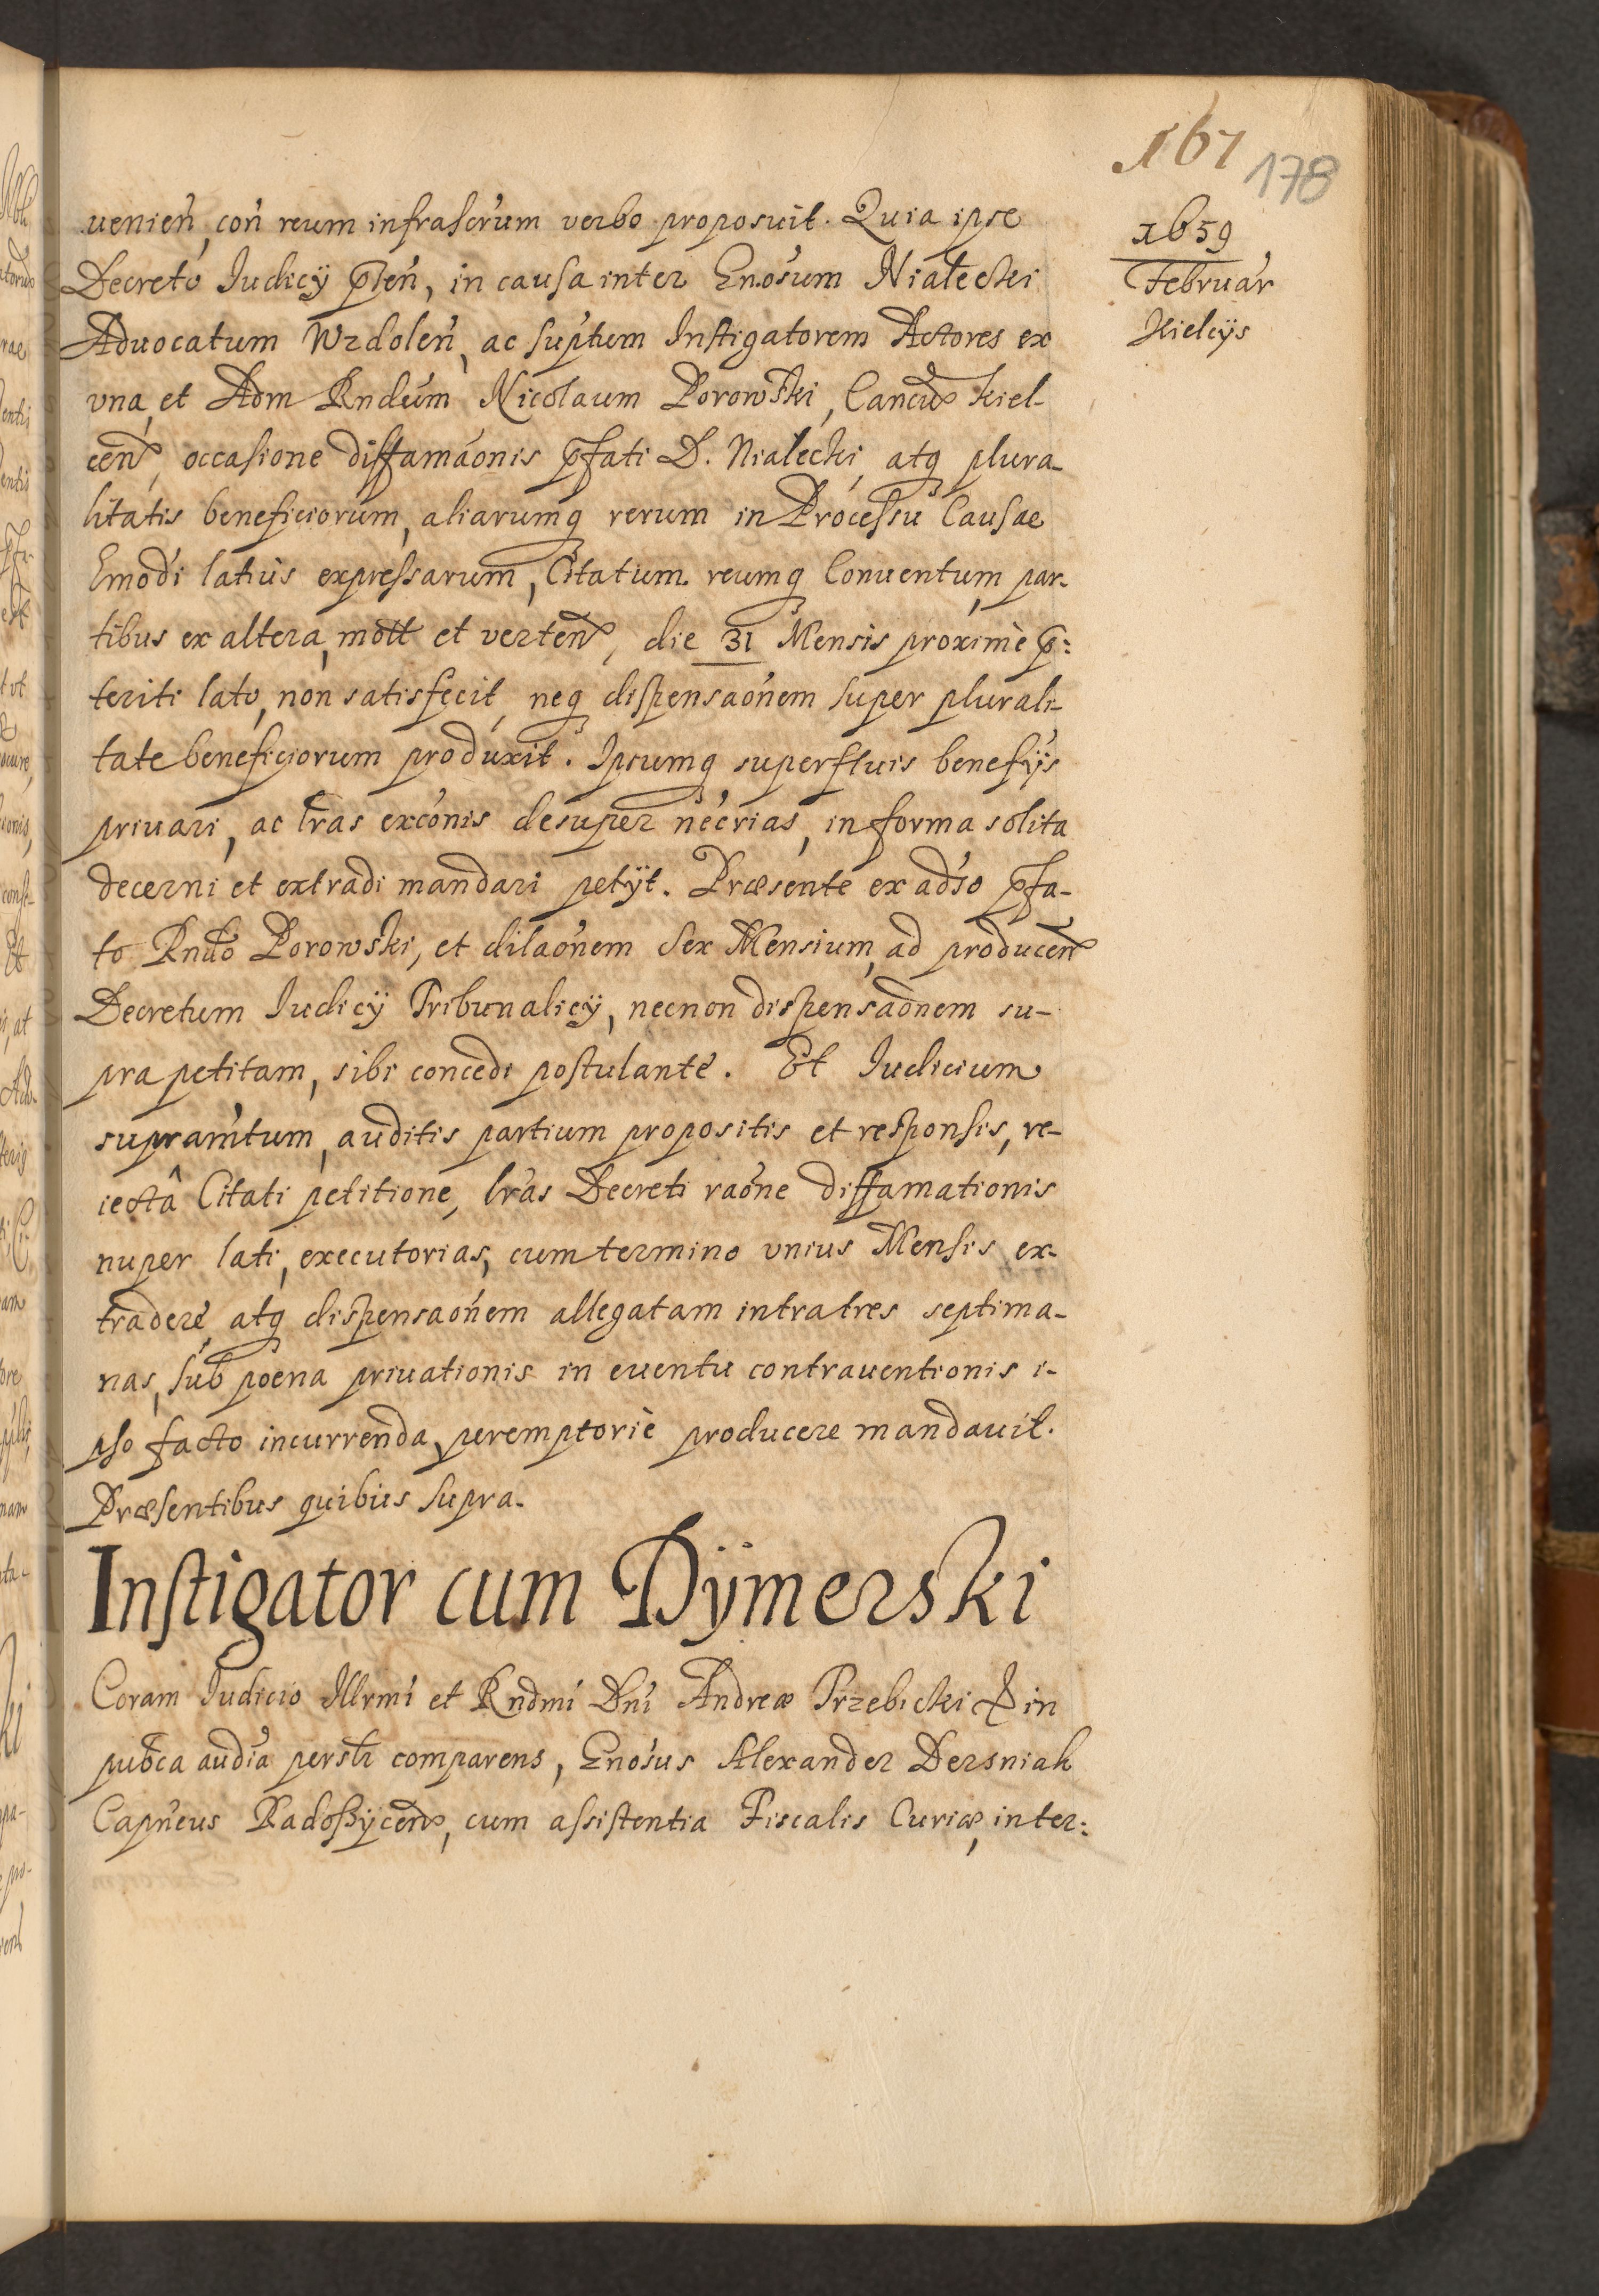 167 178
1659
Februar̃
Kielcÿs
uenień, coń reum infrascr̃um verbo proposuit. Quia ipse
Decreto Iudicÿ p̃leń, in causa inter Gnõsum Nialecki
Aduocatum Wzdoleń, ac sup̃tum Instigatorem Actores ex
vna, et Adm Rndum Nicolaum Borowski, Cancum Kiel-
ceń, occasione diffamãonis p̃fati D. Nialecki, atq plura-
litatis beneficiorum, aliarumq rerum in Processu Causae
Emõdi latius expressarum, Citatum reumq Conuentum, par-
tibus ex altera, mott et verteń, die 31 Mensis proximè p̃:
teriti lato, non satisfecit, neq dispensaõnem super plurali-
tate beneficiorum produxit. Ipsumq superfluis benefÿs
priuari, ac lr̃as excõnis desuper nec̃rias, in forma solita
decerni et extradi mandari petÿt. Præsente ex adso p̃fa-
to Rndo Borowski, et dilaõnem sex Mensium, ad produceń
Decretum Iudicÿ Tribunalicÿ, necnon dispensaõnem su-
pra petitam, sibi concedi postulante. Et Iudicium
supram̃tum, auditis partium propositis et responsis, re-
iectâ Citati petitione, lr̃as Decreti raõne diffamationis
nuper lati, executorias, cum termino vnius Mensis ex-
tradere, atq dispensaõnem allegatam intra tres septima-
nas, sub poena priuationis in euentu contrauentionis i-
pso facto incurrenda, peremptoriè producere mandauit.
Præsentibus quibus supra.
Instigator cum Dÿmerski
Coram Iudicio Illrmi et Rndmi Dni Andreæ Trzebicki & in
pubca audia perstr comparens, Gnosus Alexander Dersniak
Capneus Radoszÿceń, cum assistentia Fiscalis Curiæ, inter: